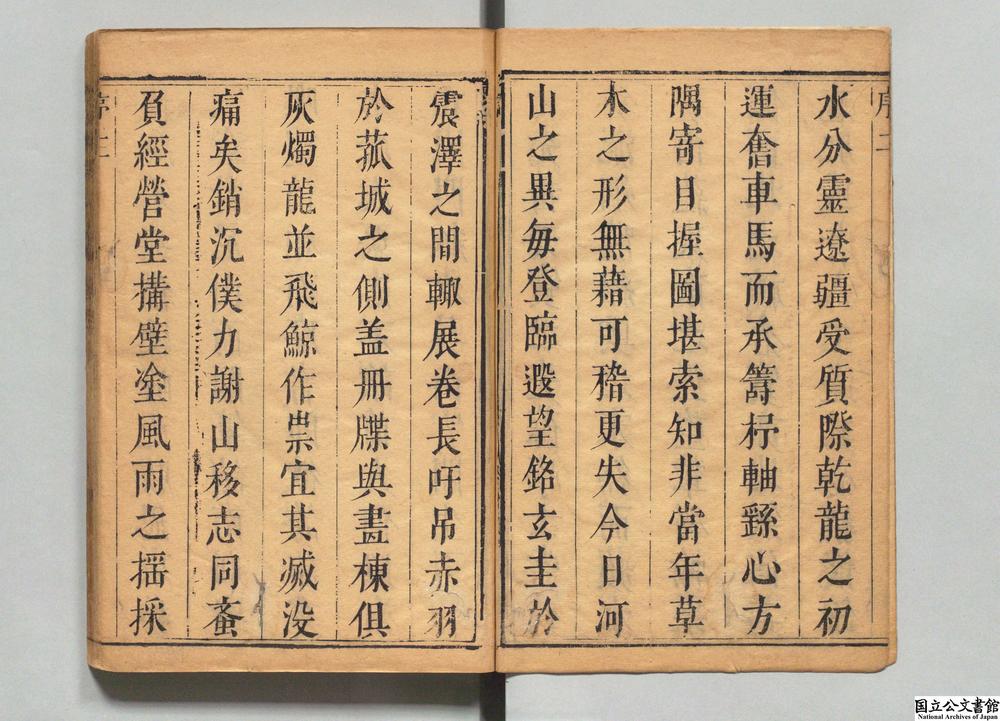 序二
水分靈遼疆受質際乾龍之初
運奮車馬而承籌杼軸繇心方
隅寄目握圖堪索知非當年草
木之形無藉可稽更失今日河
山之異每登臨遐望銘玄圭於
震澤之間輙展卷長吁吊赤羽
於菰城之側盖冊牒與畫棟俱
灰燭龍並飛鯨作祟宜其滅没
痛矣銷沉僕力謝山移志同蚉
負經營堂搆壁塗風雨之揺採
序二
国立公文書館
National Archives of Japan